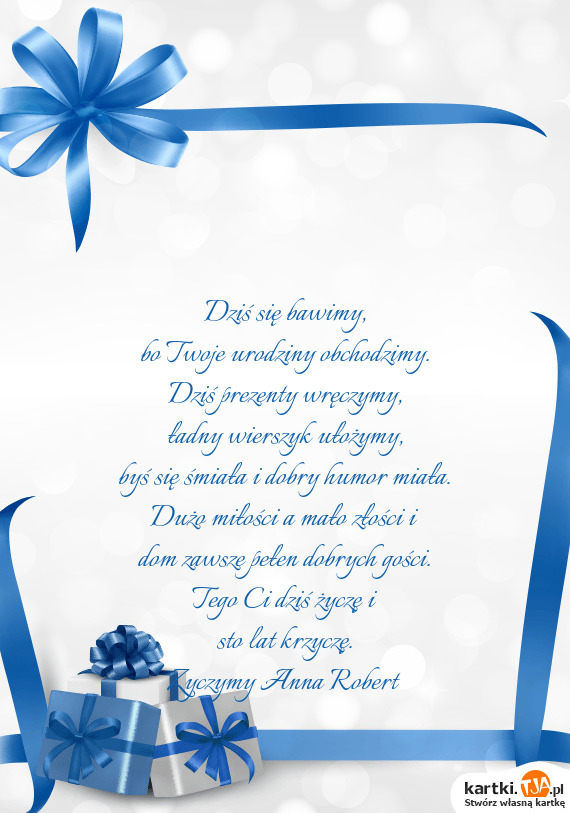 Dziś się bawimy,
bo Twoje urodziny obchodzimy.
Dziś prezenty wręczymy,
ładny wierszyk ułożymy,
byś się śmiała i dobry humor miała.
Dużo miłości a mało złości i
dom zawsze pełen dobrych gości.
Tego Ci dziś życzę i
sto lat krzyczę.
Życzymy Anna Robert
kartki.TJA.pl
Stwórz własną kartkę